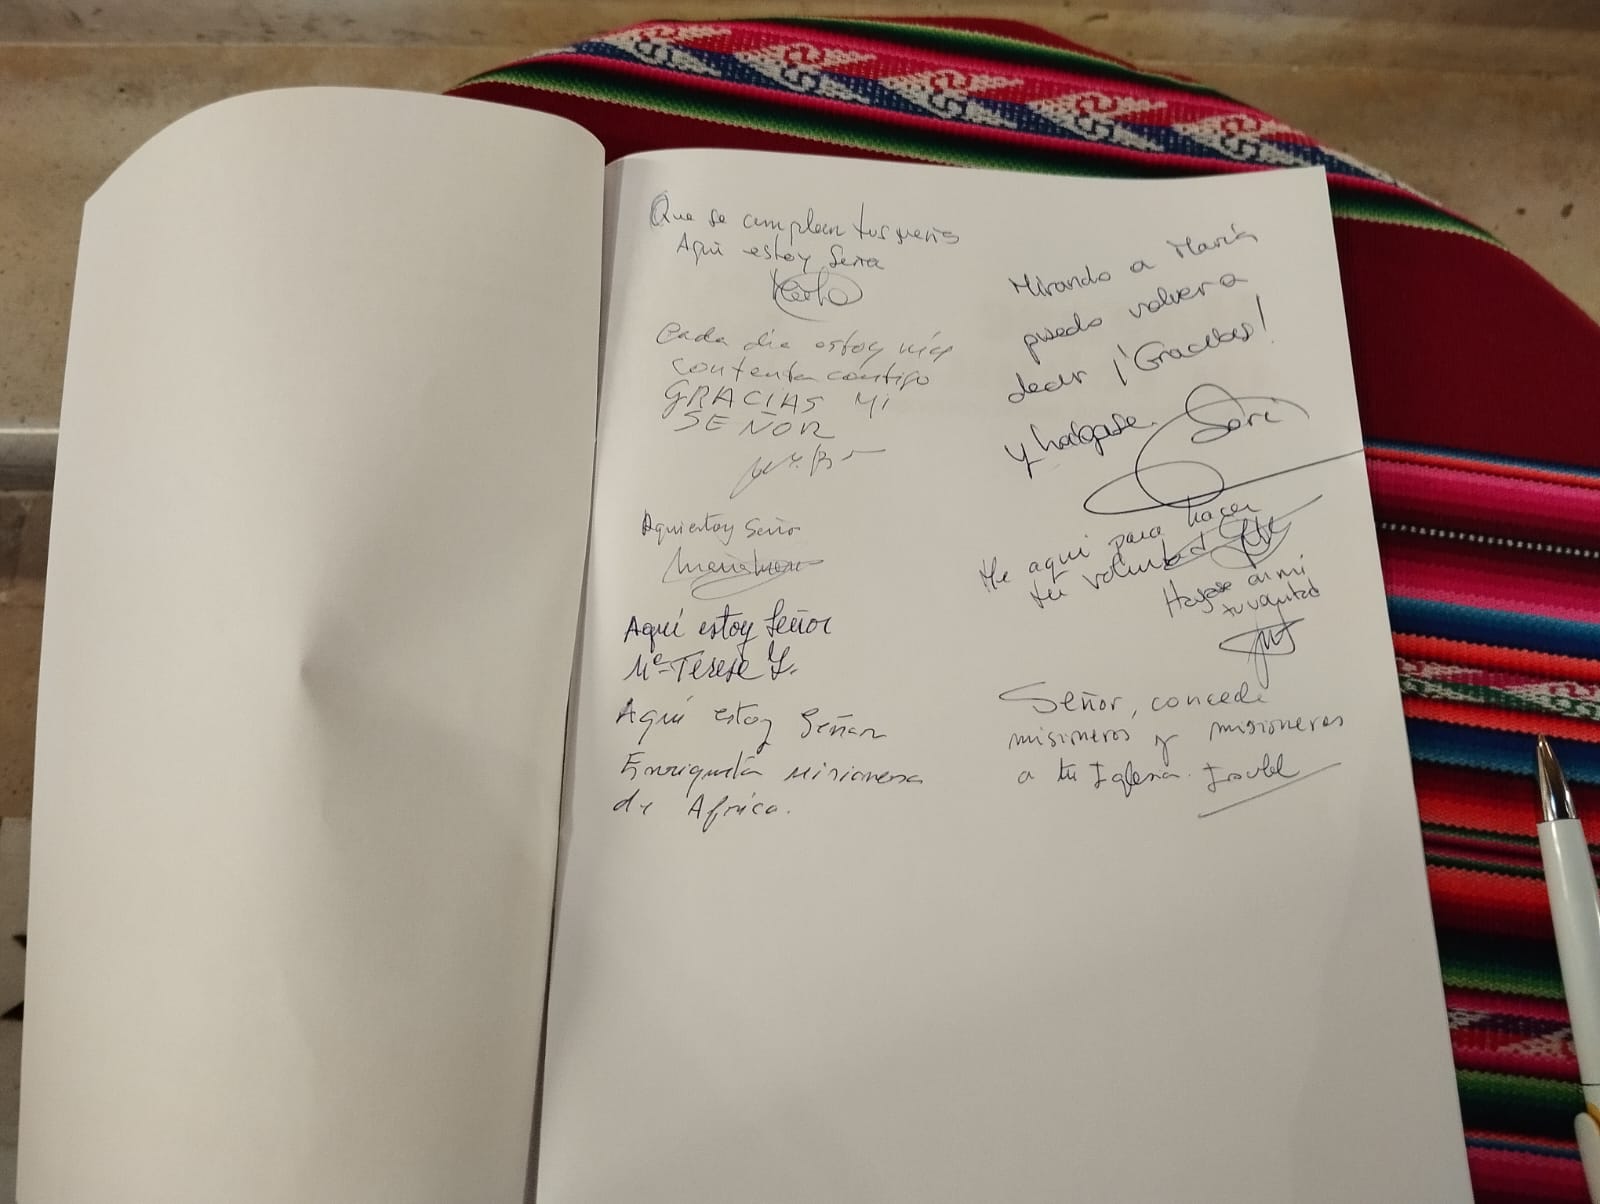 Que se cumplan tus
Aquí estoy Señor
Cada día estoy más
contenta contigo
GRACIAS MI
SEÑOR
Aquí estoy Señor
Aquí estoy Señor
Mª Teresa Y.
Aquí estoy Señor
Enriqueta Misionera
de Africa.
Mirando a María
puedo volver a
decir ¡Gracias!
y hágase.
He aquí para hacer
tu voluntad
Hágase en mi
tu voluntad
Señor, concede
misioneros y misioneras
a tu Iglesia. Isabel